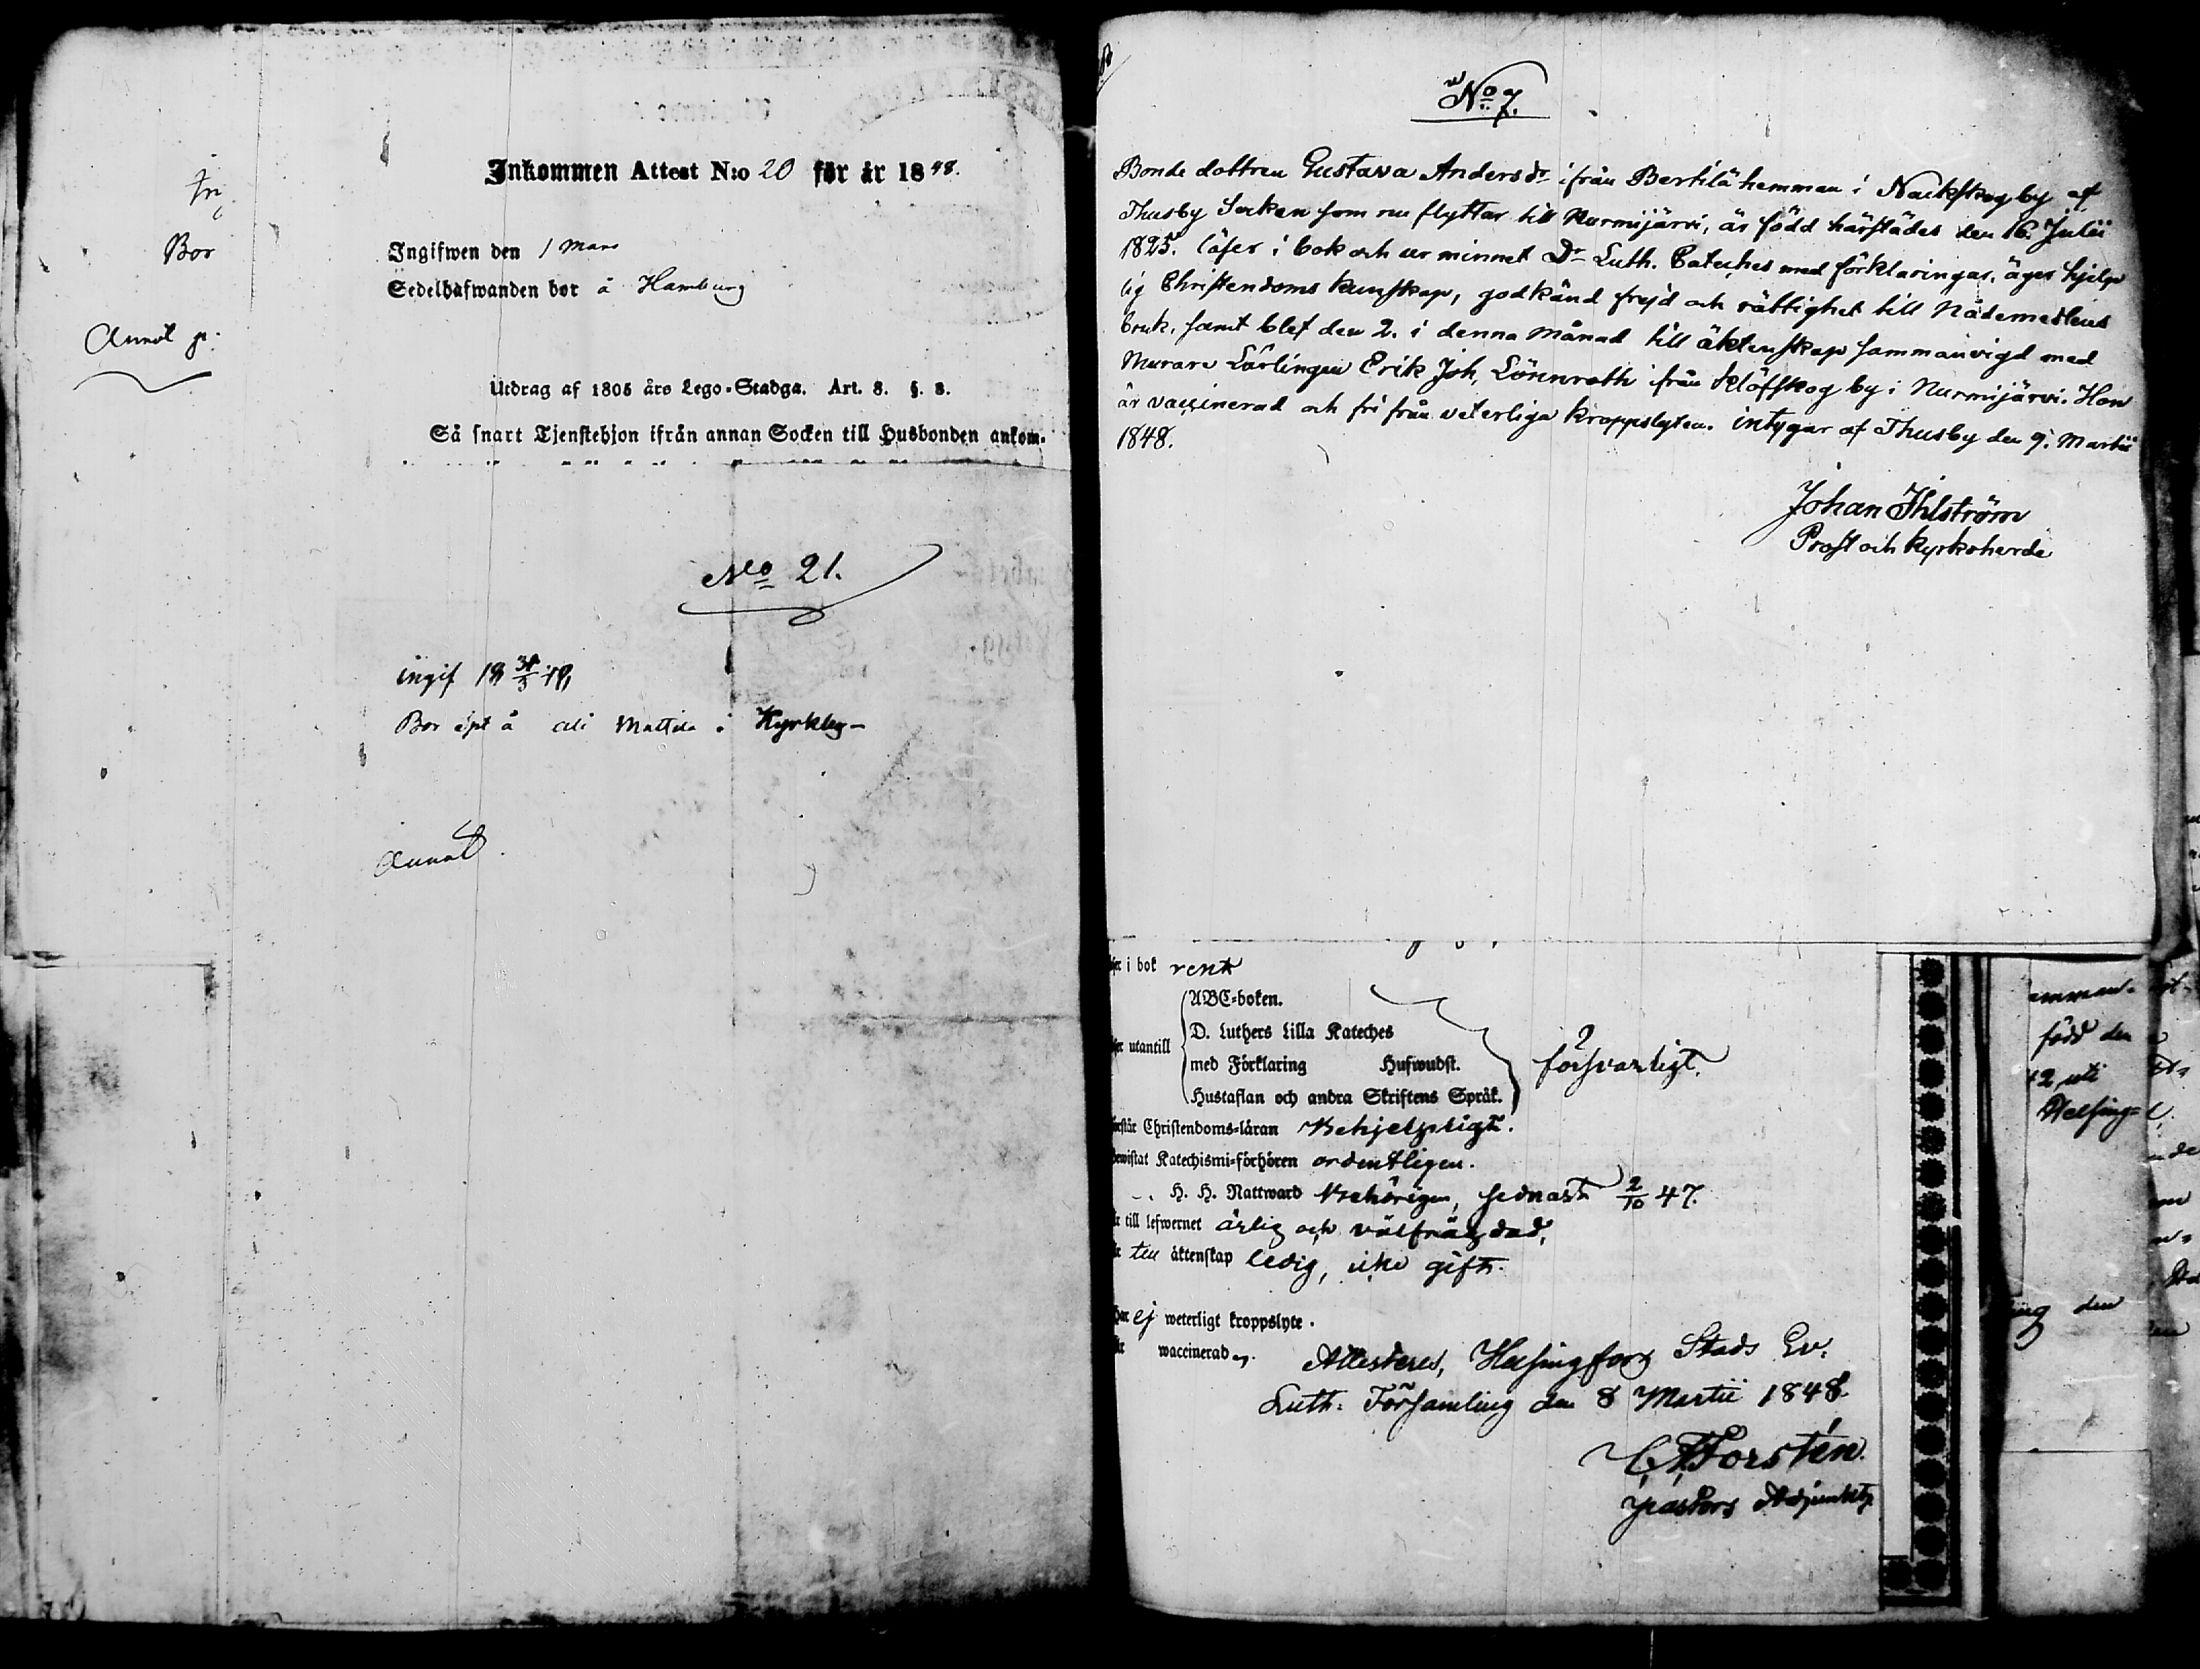 Bor
Annot
Inkommen Attest N:o 20 för år 1848.
Ingifwen den 1 Mars
Sedelhafwanden bor å Hamburg
Utdrag af 1805 års Lego-Stadga. Art. 8. §. 8.
Så snart Tjenstehjon ifrån annan Socken till Husbonden ankom-
No 21.
ingif
Bor å Mattila i Kyrkby
Annot
No 7.
Bonde dottren Gustava Andersdr ifrån Bertilä hemman i Nackskog by af
Thusby Socken som nu flyttar till Nurmijärvi, är född härstädes den 16. Julii
1825. läser i bok och ur minnet Dr Luth. Cateches med förklaringar, äger hjelp
lig Christendoms kunskap, godkänd frejd och rättighet till Nådemedlens
bruk, samt blef den 2. i denna månad till äktenskap sammanvigd med
Murare Lärlingen Erik Joh, Lönnroth ifrån Klöfskog by i Nurmijärvi. Hon
är vaccinerad och fri från veterliga kroppslyten. intygar af Thusby den 9. Martii
1848.
Johan Ihlström
Prost och Kyrkoherde
i bok rent
ABC-boken.
D. Luthers Lilla Kateches
utantill
med Förklaring Hufwudst.
försvarligt.
Hustaflan och andra Skriftens Språk.
Christendoms-läran Behjelpligt.
Katechismi-förhören ordentligen.
H. H. Nattward Behörigen, sednast 2/10 47.
till lefwernet ärlig och välfrägdad,
till äktenskap ledig, icke gift.
ej weterligt kroppslyte.
waccinerad.
Attesteras, Helsingfors Stads Ev.
Luth. Församling den 8 Martii 1848.
Forstén.
Pastors Adjunkt
född den
Helsing=
den